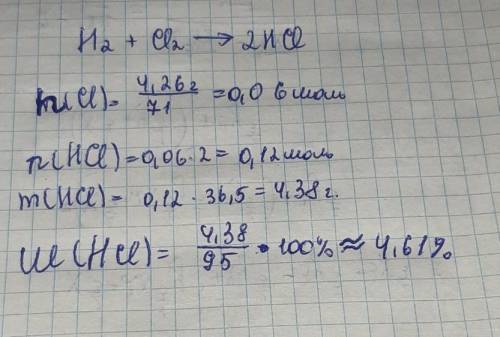 H₂ + Cl₂ → 2HCl
n(Cl) = 4,26г / 71 = 0,06 моль
n(HCl) = 0,06 · 2 = 0,12 моль
m(HCl) = 0,12 · 36,5 = 4,38 г.
W(HCl) = 4,38 / 95 · 100% ≈ 4,61%